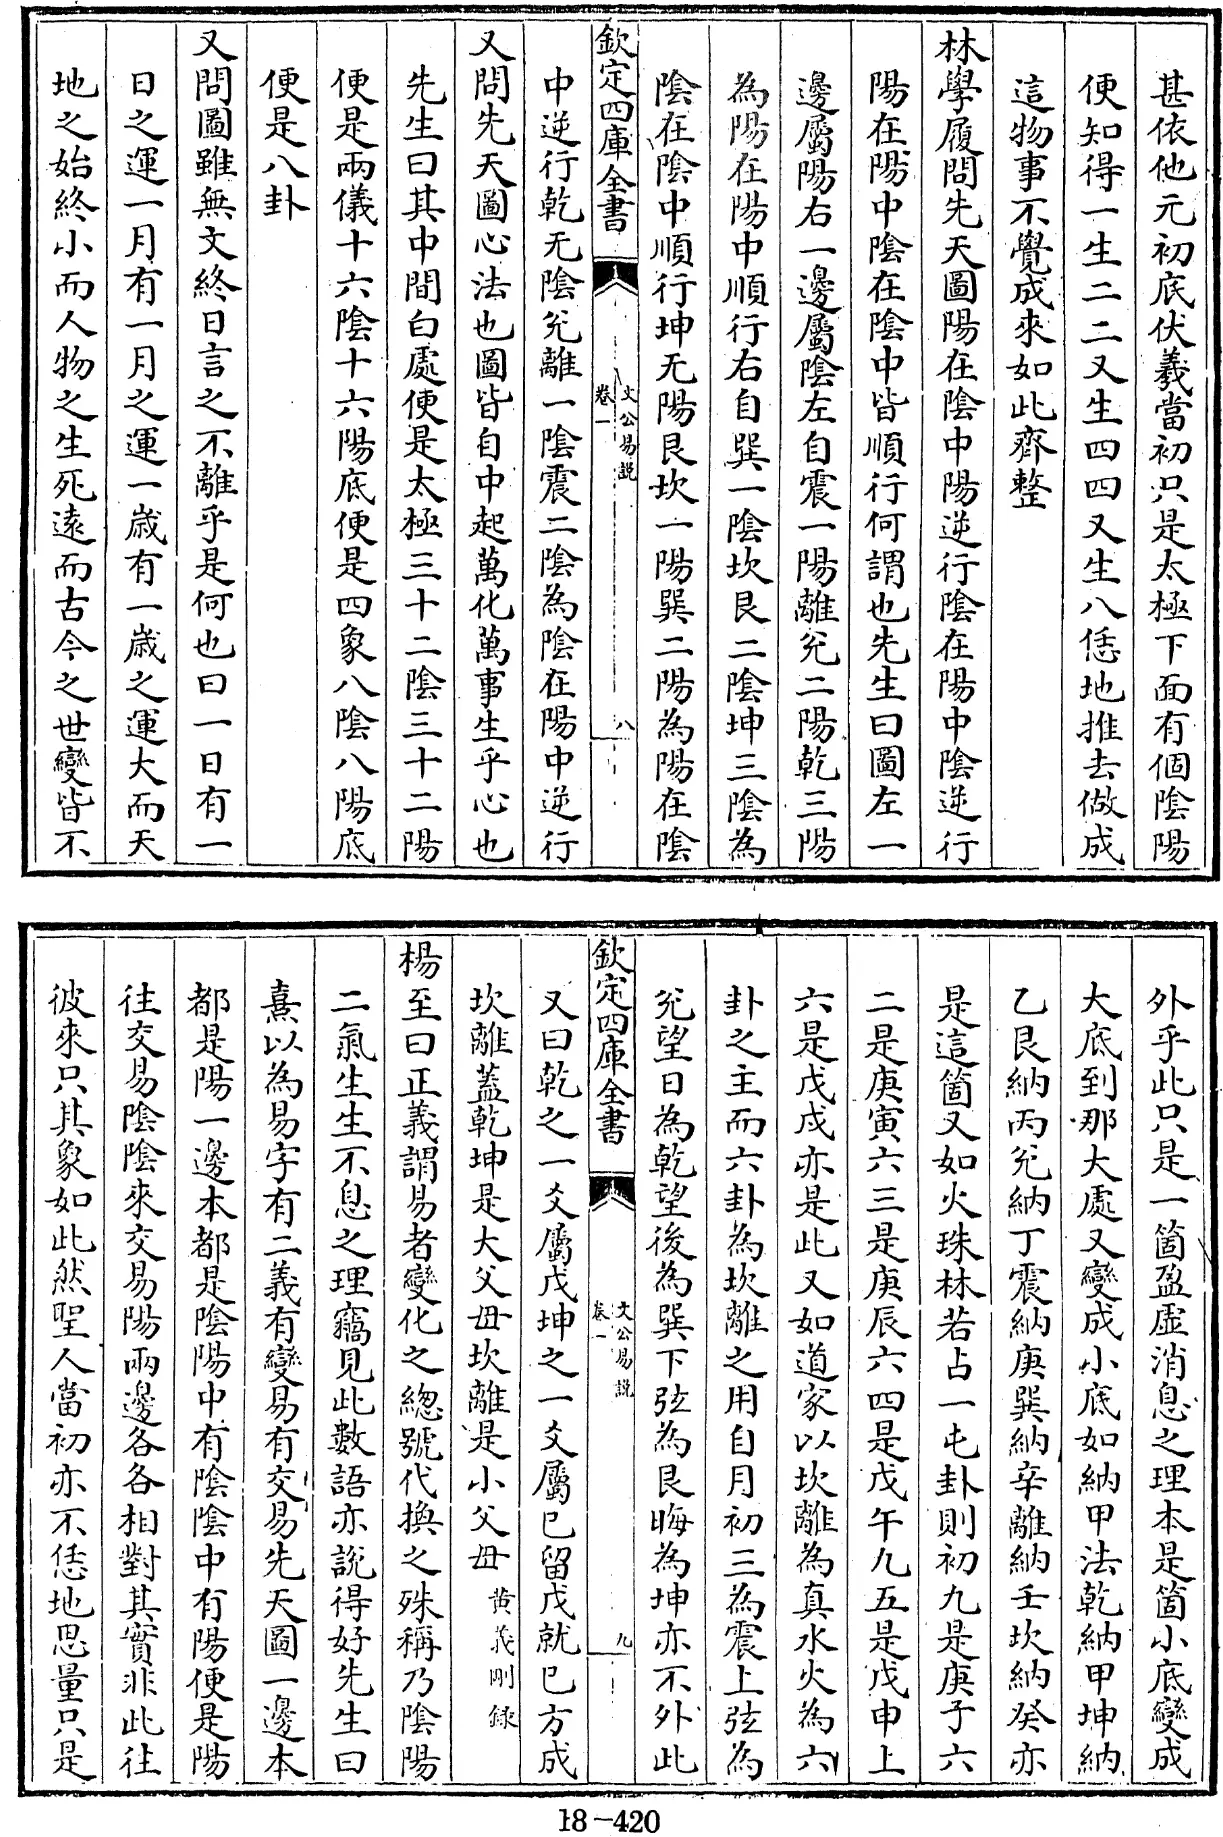 甚依他元初底伏羲當初只是太極下面有個陰陽
便知得一生二二又生四四又生八恁地推去做成
這物事不覺成來如此齊整
林學履問先天圖陽在陰中陽逆行陰在陽中陰逆行
陽在陽中陰在陰中皆順行何謂也先生曰圖左一
邊屬陽右一邊屬陰左自震一陽離兊二陽乾三陽
為陽在陽中順行右自巽一陰坎艮二陰坤三陰為
陰在陰中順行坤无陽艮坎一陽巽二陽為陽在陰
欽定四庫全書
文公易說
卷一
八
中逆行乾无陰兊離一陰震二陰為陰在陽中逆行
又問先天圖心法也圖皆自中起萬化萬事生乎心也
先生曰其中間白處便是太極三十二陰三十二陽
便是兩儀十六陰十六陽底便是四象八陰八陽底
便是八卦
又問圖雖無文終日言之不離乎是何也曰一日有一
日之運一月有一月之運一歲有一歲之運大而天
地之始終小而人物之生死遠而古今之世變皆不
外乎此只是一箇盈虛消息之理本是箇小底變成
大底到那大處又變成小底如納甲法乾納甲坤納
乙艮納丙兊納丁震納庚巽納辛離納壬坎納癸亦
是這箇又如火珠林若占一屯卦則初九是庚子六
二是庚寅六三是庚辰六四是戊午九五是戊申上
六是戊戌亦是此又如道家以坎離為真水火為六
卦之主而六卦為坎離之用自月初三為震上弦為
兊望日為乾望後為巽下弦為艮晦為坤亦不外此
欽定四庫全書
文公易說
卷一
九
又曰乾之一爻屬戊坤之一爻屬巳留戊就巳方成
坎離蓋乾坤是大父母坎離是小父母黄義剛錄
楊至曰正義謂易者變化之總號代換之殊稱乃陰陽
二氣生生不息之理竊見此數語亦說得好先生曰
熹以為易字有二義有變易有交易先天圖一邊本
都是陽一邊本都是陰陽中有陰陰中有陽便是陽
往交易陰陰來交易陽兩邊各各相對其實非此往
彼來只其象如此然聖人當初亦不恁地思量只是
18-420